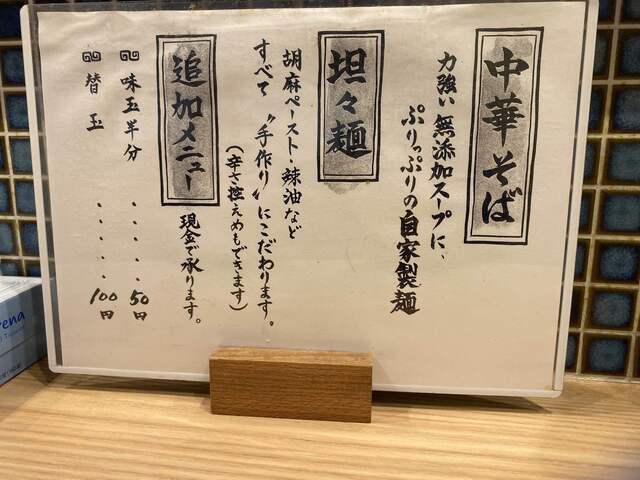 中華そば
力強い無添加スープに、
ぷりっぷりの自家製麺
坦々麺
胡麻ペースト・辣油など
すべて〝手作り〟にこだわります。
(辛さ控えめもできます)
追加メニュー
現金で承ります。
味玉半分・・・・・50円
替玉・・・・・100円
rena